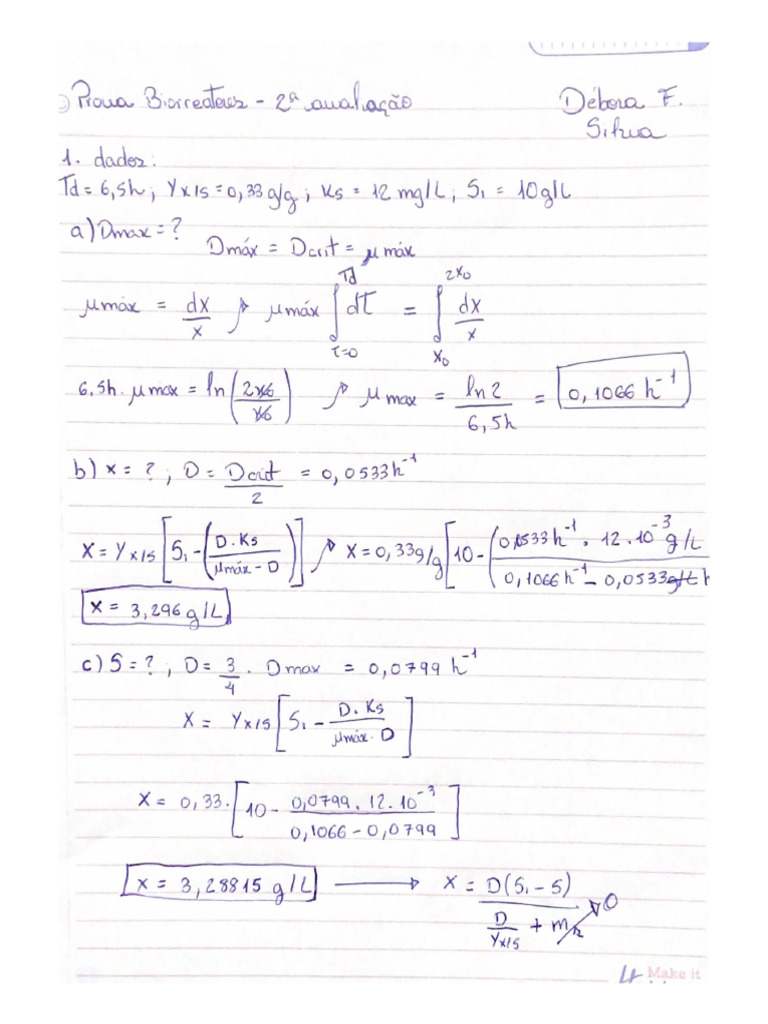 Prova Biorreatores - 2ª avaliação
Débora F. Silva
1. dados:
Td = 6,5h ; Yx/s = 0,33 g/g ; Ks = 12 mg/L ; Si = 10 g/L
a) Dmax = ?
Dmáx = Dcrit = μmáx
μmáx = dx/x → μmáx ∫_{T=0}^{Td} dT = ∫_{x0}^{2x0} dx/x
6,5h . μmax = ln(2x0/x0) → μmax = ln2/6,5h = 0,1066 h⁻¹
b) x = ? ; D = Dcrit/2 = 0,0533 h⁻¹
X = Yx/s [Si - (D.Ks/μmáx - D)] → X = 0,33 g/g [10 - (0,0533 h⁻¹ . 12.10⁻³ g/L / 0,1066 h⁻¹ - 0,0533
x = 3,296 g/L
c) S = ? , D = 3/4 . Dmax = 0,0799 h⁻¹
X = Yx/s [Si - D.Ks/μmáx - D]
X = 0,33 . [10 - 0,0799 . 12.10⁻³ / 0,1066 - 0,0799]
x = 3,28815 g/L → X = D(Si - S) / D/Yx/s + m → 0
Make it